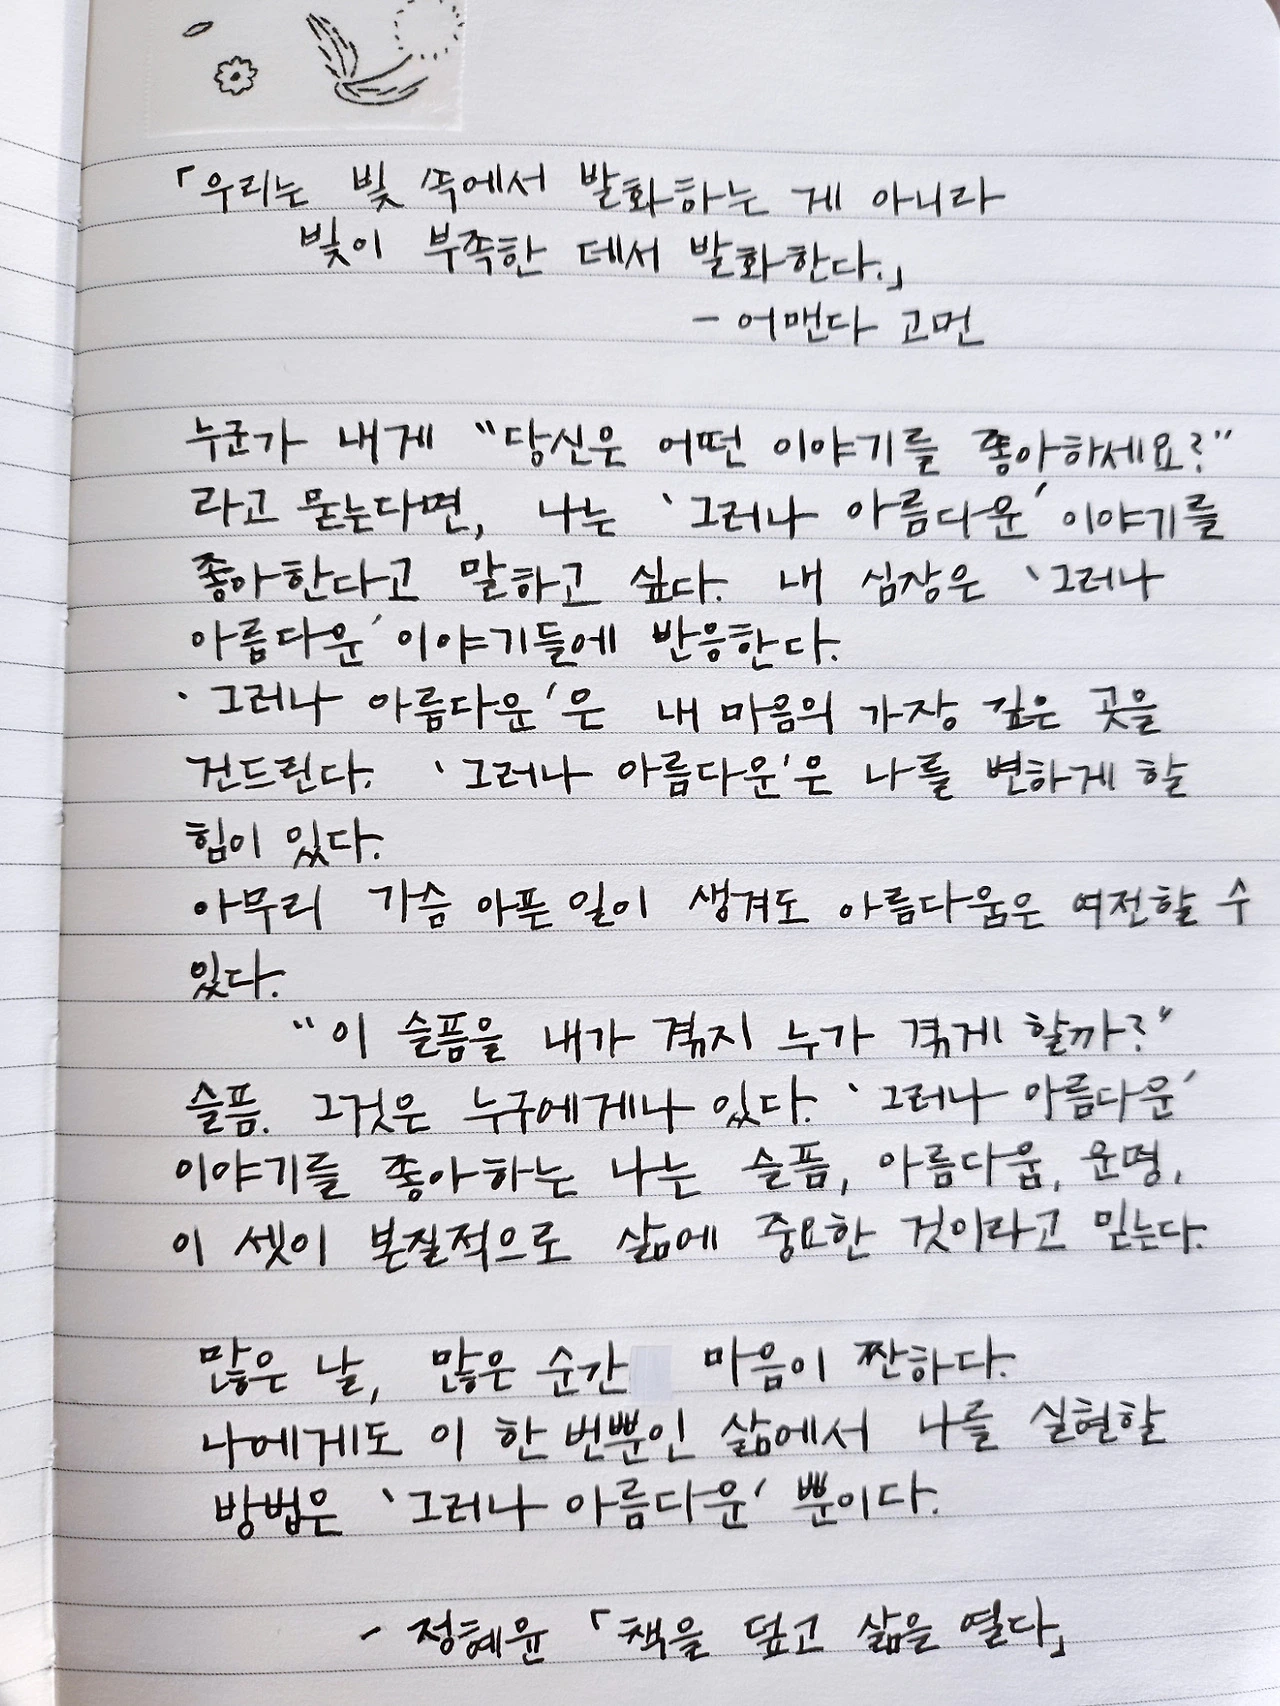 「우리는 빛 쪽에서 발화하는 게 아니라
빛이 부족한 데서 발화한다.」
- 어맨다 고먼
누군가 내게 "당신은 어떤 이야기를 좋아하세요?"
라고 묻는다면, 나는 '그러나 아름다운' 이야기를
좋아한다고 말하고 싶다. 내 심장은 '그러나
아름다운' 이야기들에 반응한다.
'그러나 아름다운'은 내 마음의 가장 깊은 곳을
건드린다. '그러나 아름다운'은 나를 변하게 할
힘이 있다.
아무리 가슴 아픈 일이 생겨도 아름다움은 여전할 수
있다.
"이 슬픔을 내가 겪지 누가 겪게 할까?"
슬픔. 그것은 누구에게나 있다. '그러나 아름다운'
이야기를 좋아하는 나는 슬픔, 아름다움, 운명,
이 셋이 본질적으로 삶에 중요한 것이라고 믿는다.
많은 날, 많은 순간 마음이 짠하다.
나에게도 이 한 번뿐인 삶에서 나를 실현할
방법은 '그러나 아름다운' 뿐이다.
- 정혜윤 「책을 덮고 삶을 열다」